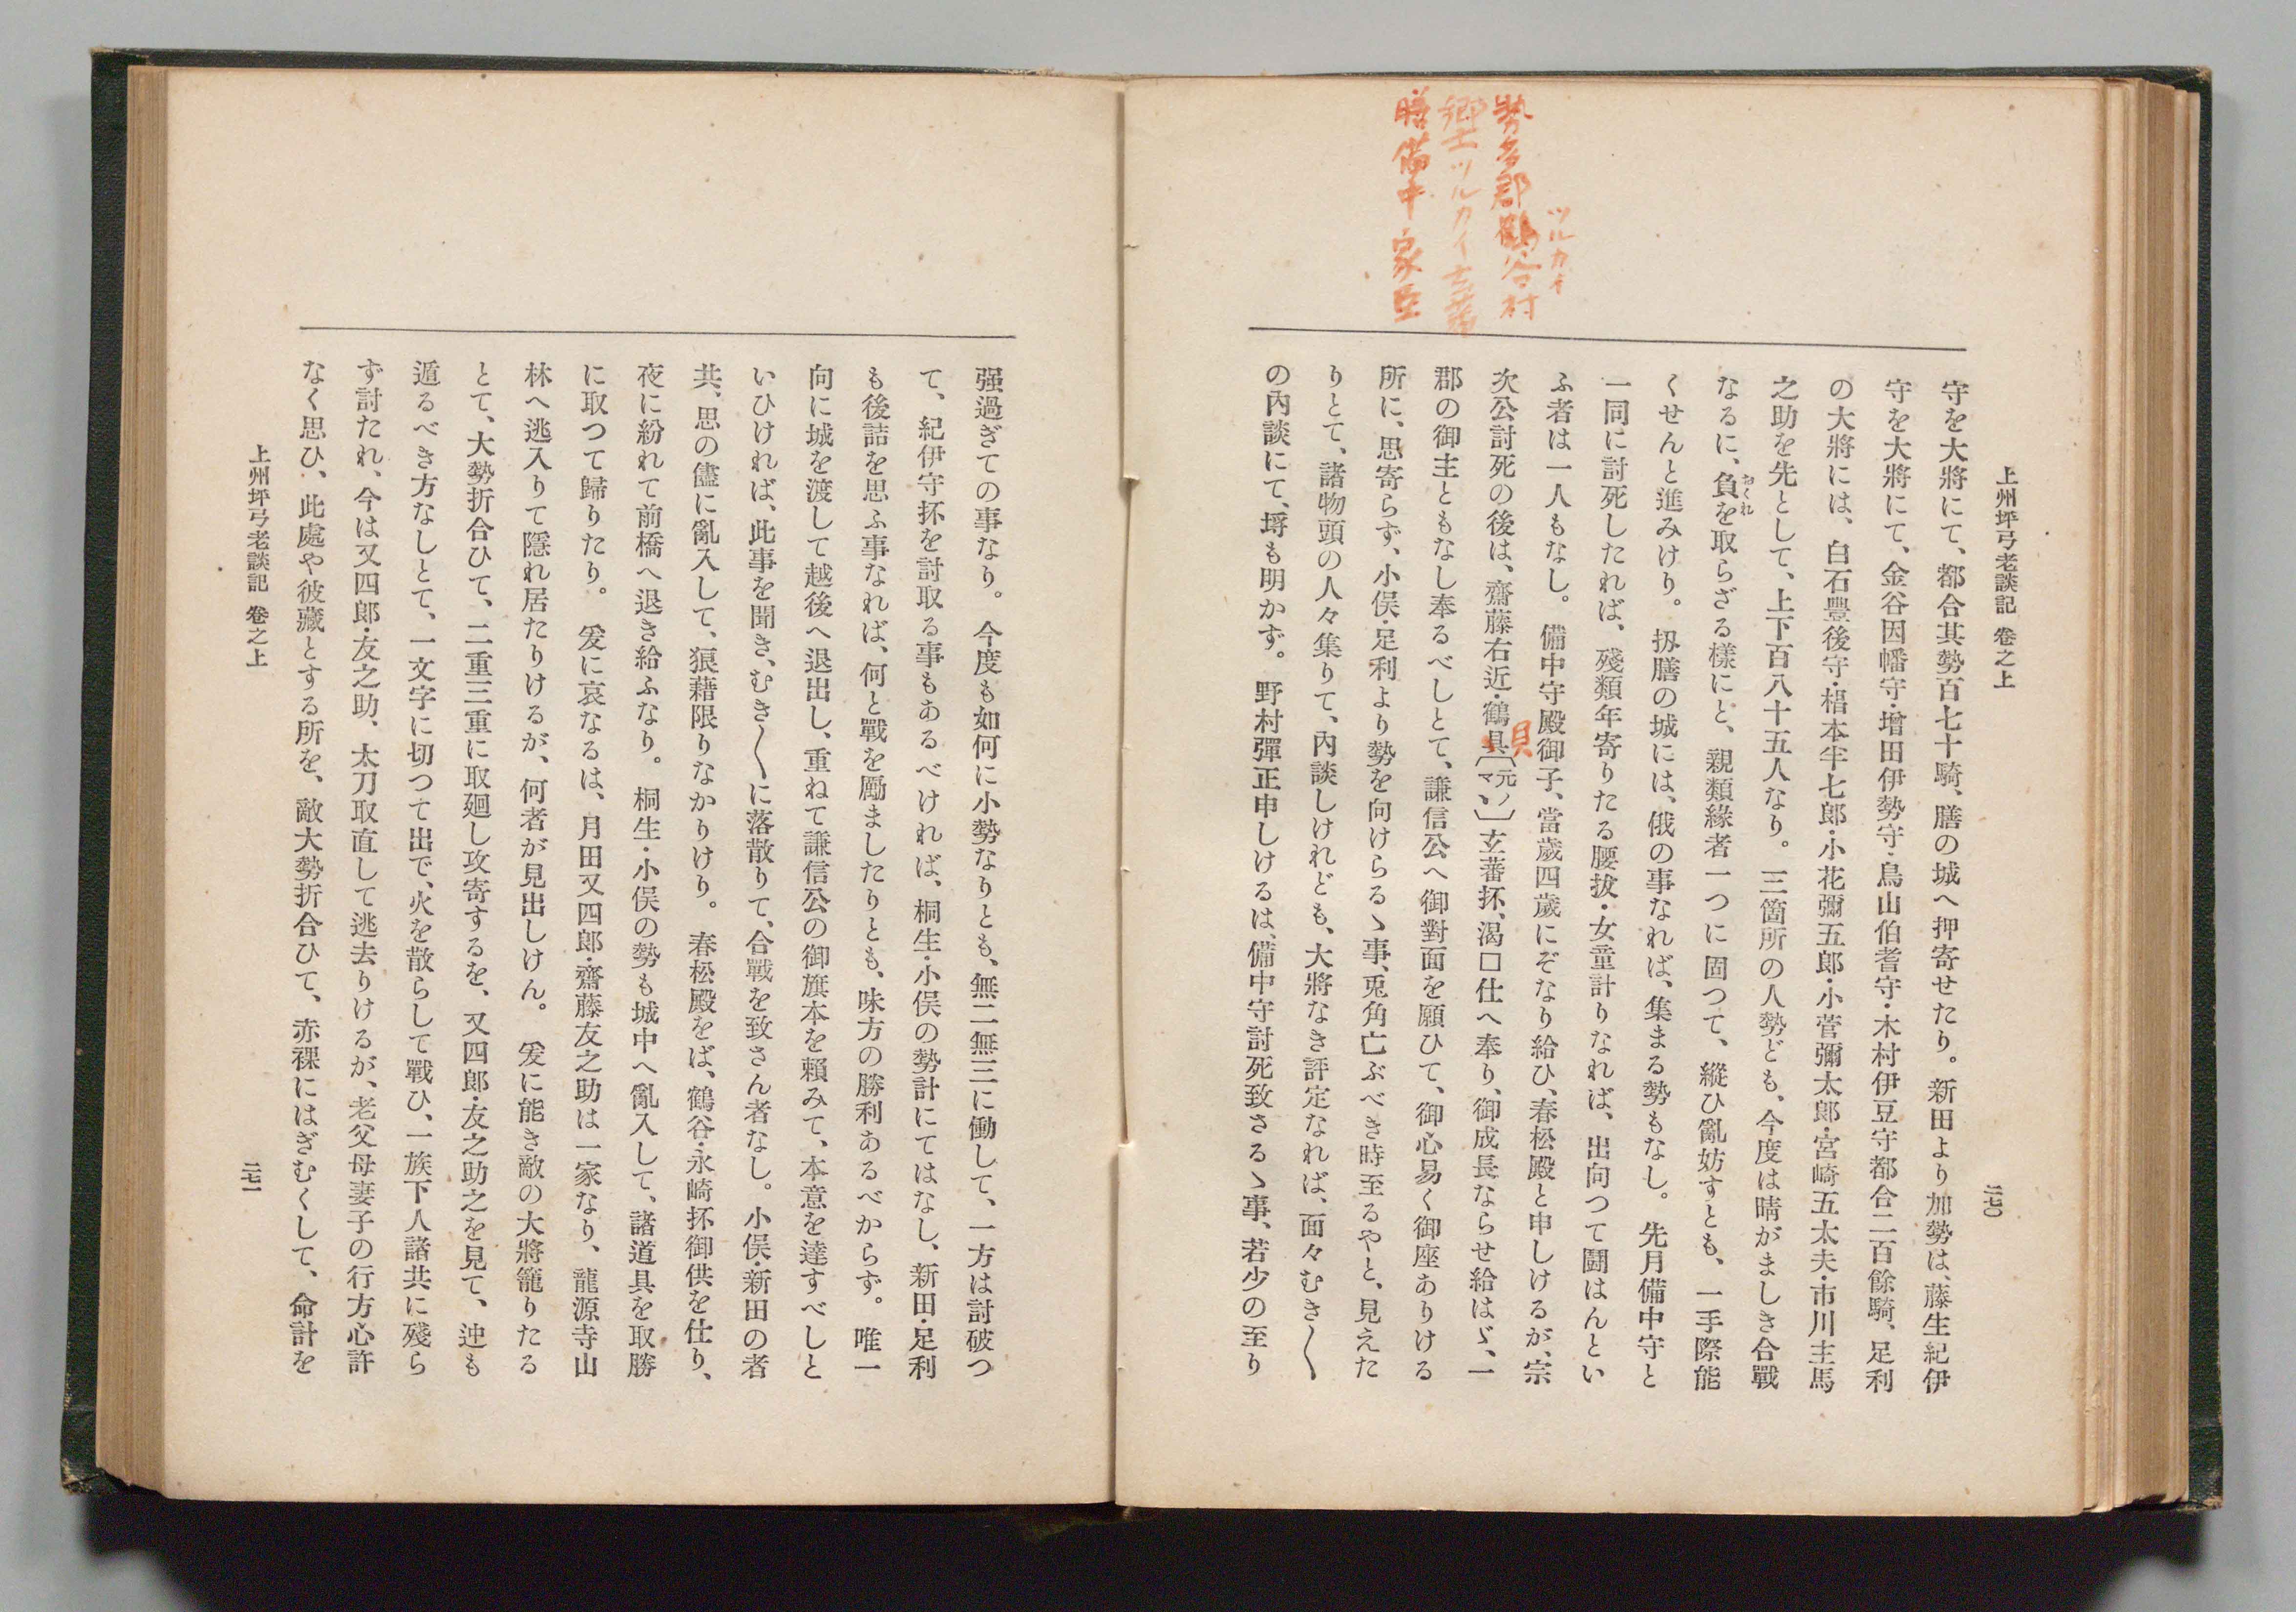 上州坪弓老談記 卷之上
二七〇
勢多郡鶴谷村
ツルカイ
郷士ツルカイ玄蕃
膳備中家臣
守を大將にて、都合其勢百七十騎、膳の城へ押寄せたり。新田より加勢は、藤生紀伊
守を大將にて、金谷因幡守・增田伊勢守・鳥山伯耆守・木村伊豆守都合二百餘騎、足利
の大將には、白石豐後守・椙本半七郎・小花彌五郎・小菅彌太郎・宮崎五太夫・市川主馬
之助を先として、上下百八十五人なり。三箇所の人勢ども、今度は晴がましき合戰
なるに、負を取らざる樣にと、親類緣者一つに固つて、縱ひ亂妨すとも、一手際能
おくれ
くせんと進みけり。扨膳の城には、俄の事なれば、集まる勢もなし。先月備中守と
一同に討死したれば、殘類年寄りたる腰拔・女童計りなれば、出向つて鬪はんとい
ふ者は一人もなし。備中守殿御子、當歲四歲にぞなり給ひ、春松殿と申しけるが、宗
次公討死の後は、齋藤右近・鶴具〔元ノマヽ〕玄蕃抔、渴口仕へ奉り、御成長ならせ給はゞ、一
貝
郡の御主ともなし奉るべしとて、謙信公へ御對面を願ひて、御心易く御座ありける
所に、思寄らず、小俣・足利より勢を向けらるゝ事、兎角亡ぶべき時至るやと、見えた
りとて、諸物頭の人々集りて、內談しけれども、大將なき評定なれば、面々むき〱
の內談にて、埓も明かず。野村彈正申しけるは、備中守討死致さるゝ事、若少の至り
强過ぎての事なり。今度も如何に小勢なりとも、無二無三に働して、一方は討破つ
て、紀伊守抔を討取る事もあるべければ、桐生・小俣の勢計にてはなし、新田・足利
も後詰を思ふ事なれば、何と戰を勵ましたりとも、味方の勝利あるべからず。唯一
向に城を渡して越後へ退出し、重ねて謙信公の御旗本を賴みて、本意を達すべしと
いひければ、此事を聞き、むき〱に落散りて、合戰を致さん者なし。小俣・新田の者
共、思の儘に亂入して、狼藉限りなかりけり。春松殿をば、鶴谷・永崎抔御供を仕り、
夜に紛れて前橋へ退き給ふなり。桐生・小俣の勢も城中へ亂入して、諸道具を取勝
に取つて歸りたり。爰に哀なるは、月田又四郎・齋藤友之助は一家なり、龍源寺山
林へ逃入りて隱れ居たりけるが、何者が見出しけん。爰に能き敵の大將籠りたる
とて、大勢折合ひて、二重三重に取廻し攻寄するを、又四郎・友之助之を見て、迚も
遁るべき方なしとて、一文字に切つて出で、火を散らして戰ひ、一族下人諸共に殘ら
ず討たれ、今は又四郎・友之助、太刀取直して逃去りけるが、老父母妻子の行方心許
なく思ひ、此處や彼藏とする所を、敵大勢折合ひて、赤裸にはぎむくして、命計を
上州坪弓老談記 卷之上
二七一